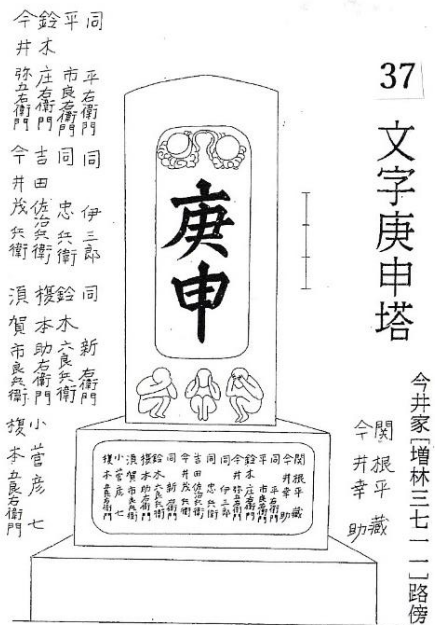 37 文字庚申塔
今井家[増林三七一一]路傍
関根平藏
今井幸助
庚申
関根平藏
今井幸助
同 平右衛門
平 市良右衛門
鈴木庄右衛門
今井弥五右衛門
同 伊三郎
同 忠兵衛
吉田佐治兵衛
今井茂兵衛
同 新右衛門
鈴木六良兵衛
榎本助右衛門
須賀市良兵衛
小菅彦七
榎本五良右衛門
同 平右衛門
平 市良右衛門
鈴木庄右衛門
今井弥五右衛門
同 伊三郎
同 忠兵衛
吉田佐治兵衛
今井茂兵衛
同 新右衛門
鈴木六良兵衛
榎本助右衛門
須賀市良兵衛
小菅彦七
榎本五良右衛門